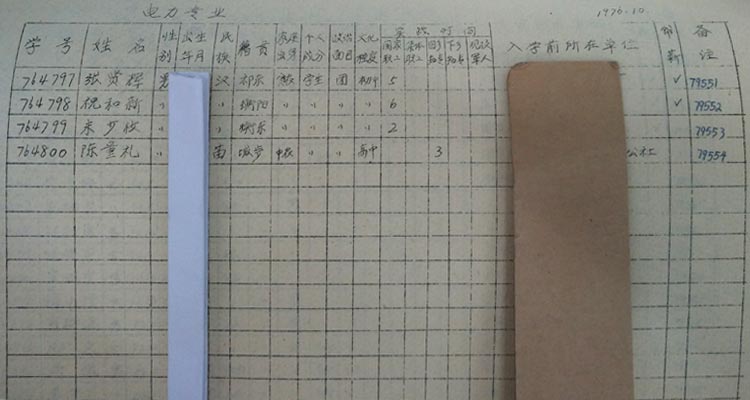 电力专业 1976.10.
学号 姓名 性别 出生年月 民族 籍贯 家庭出身 个人成分 政治面目 文化程度 实践时间 国家职工 集体职工 回乡知青 下乡知青 退役军人 入学前所在单位 带薪 备注
764797 贤辉 男 汉 祁东 学生 团 初中 5 ✓ 79551
764798 祝和新 〃 〃 衡阳 〃 〃 〃 〃 6 ✓ 79552
764799 〃 〃 衡东 〃 〃 〃 〃 2 79553
764800 陈童礼 〃 苗 中农 〃 〃 高中 3 公社 79554